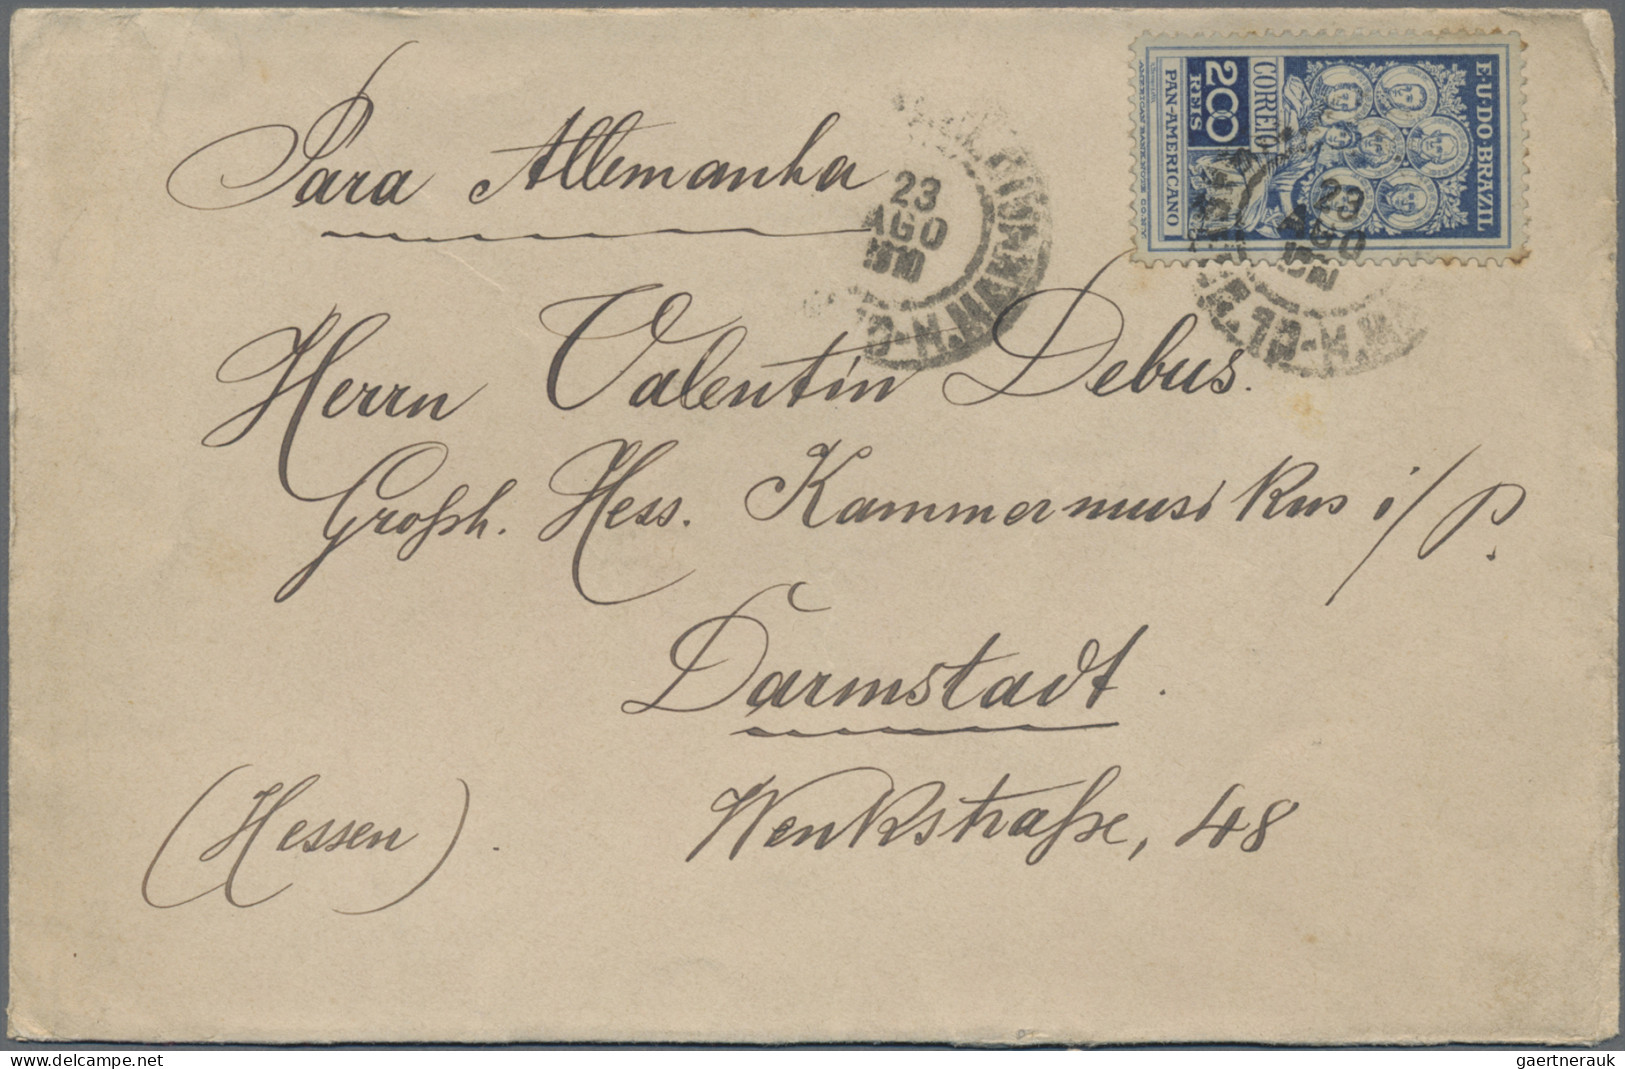 Para Allemanha
23
AGO
1910
E·U·DO·BRAZIL
CORREIO
200
REIS
PAN-AMERICANO
23
AGO
Herrn Valentin Debus.
Großh. Hess. Kammermusikus i/P.
Darmstadt.
(Hessen).
Wenkstraße, 48
www.delcampe.net
gaertnerauk